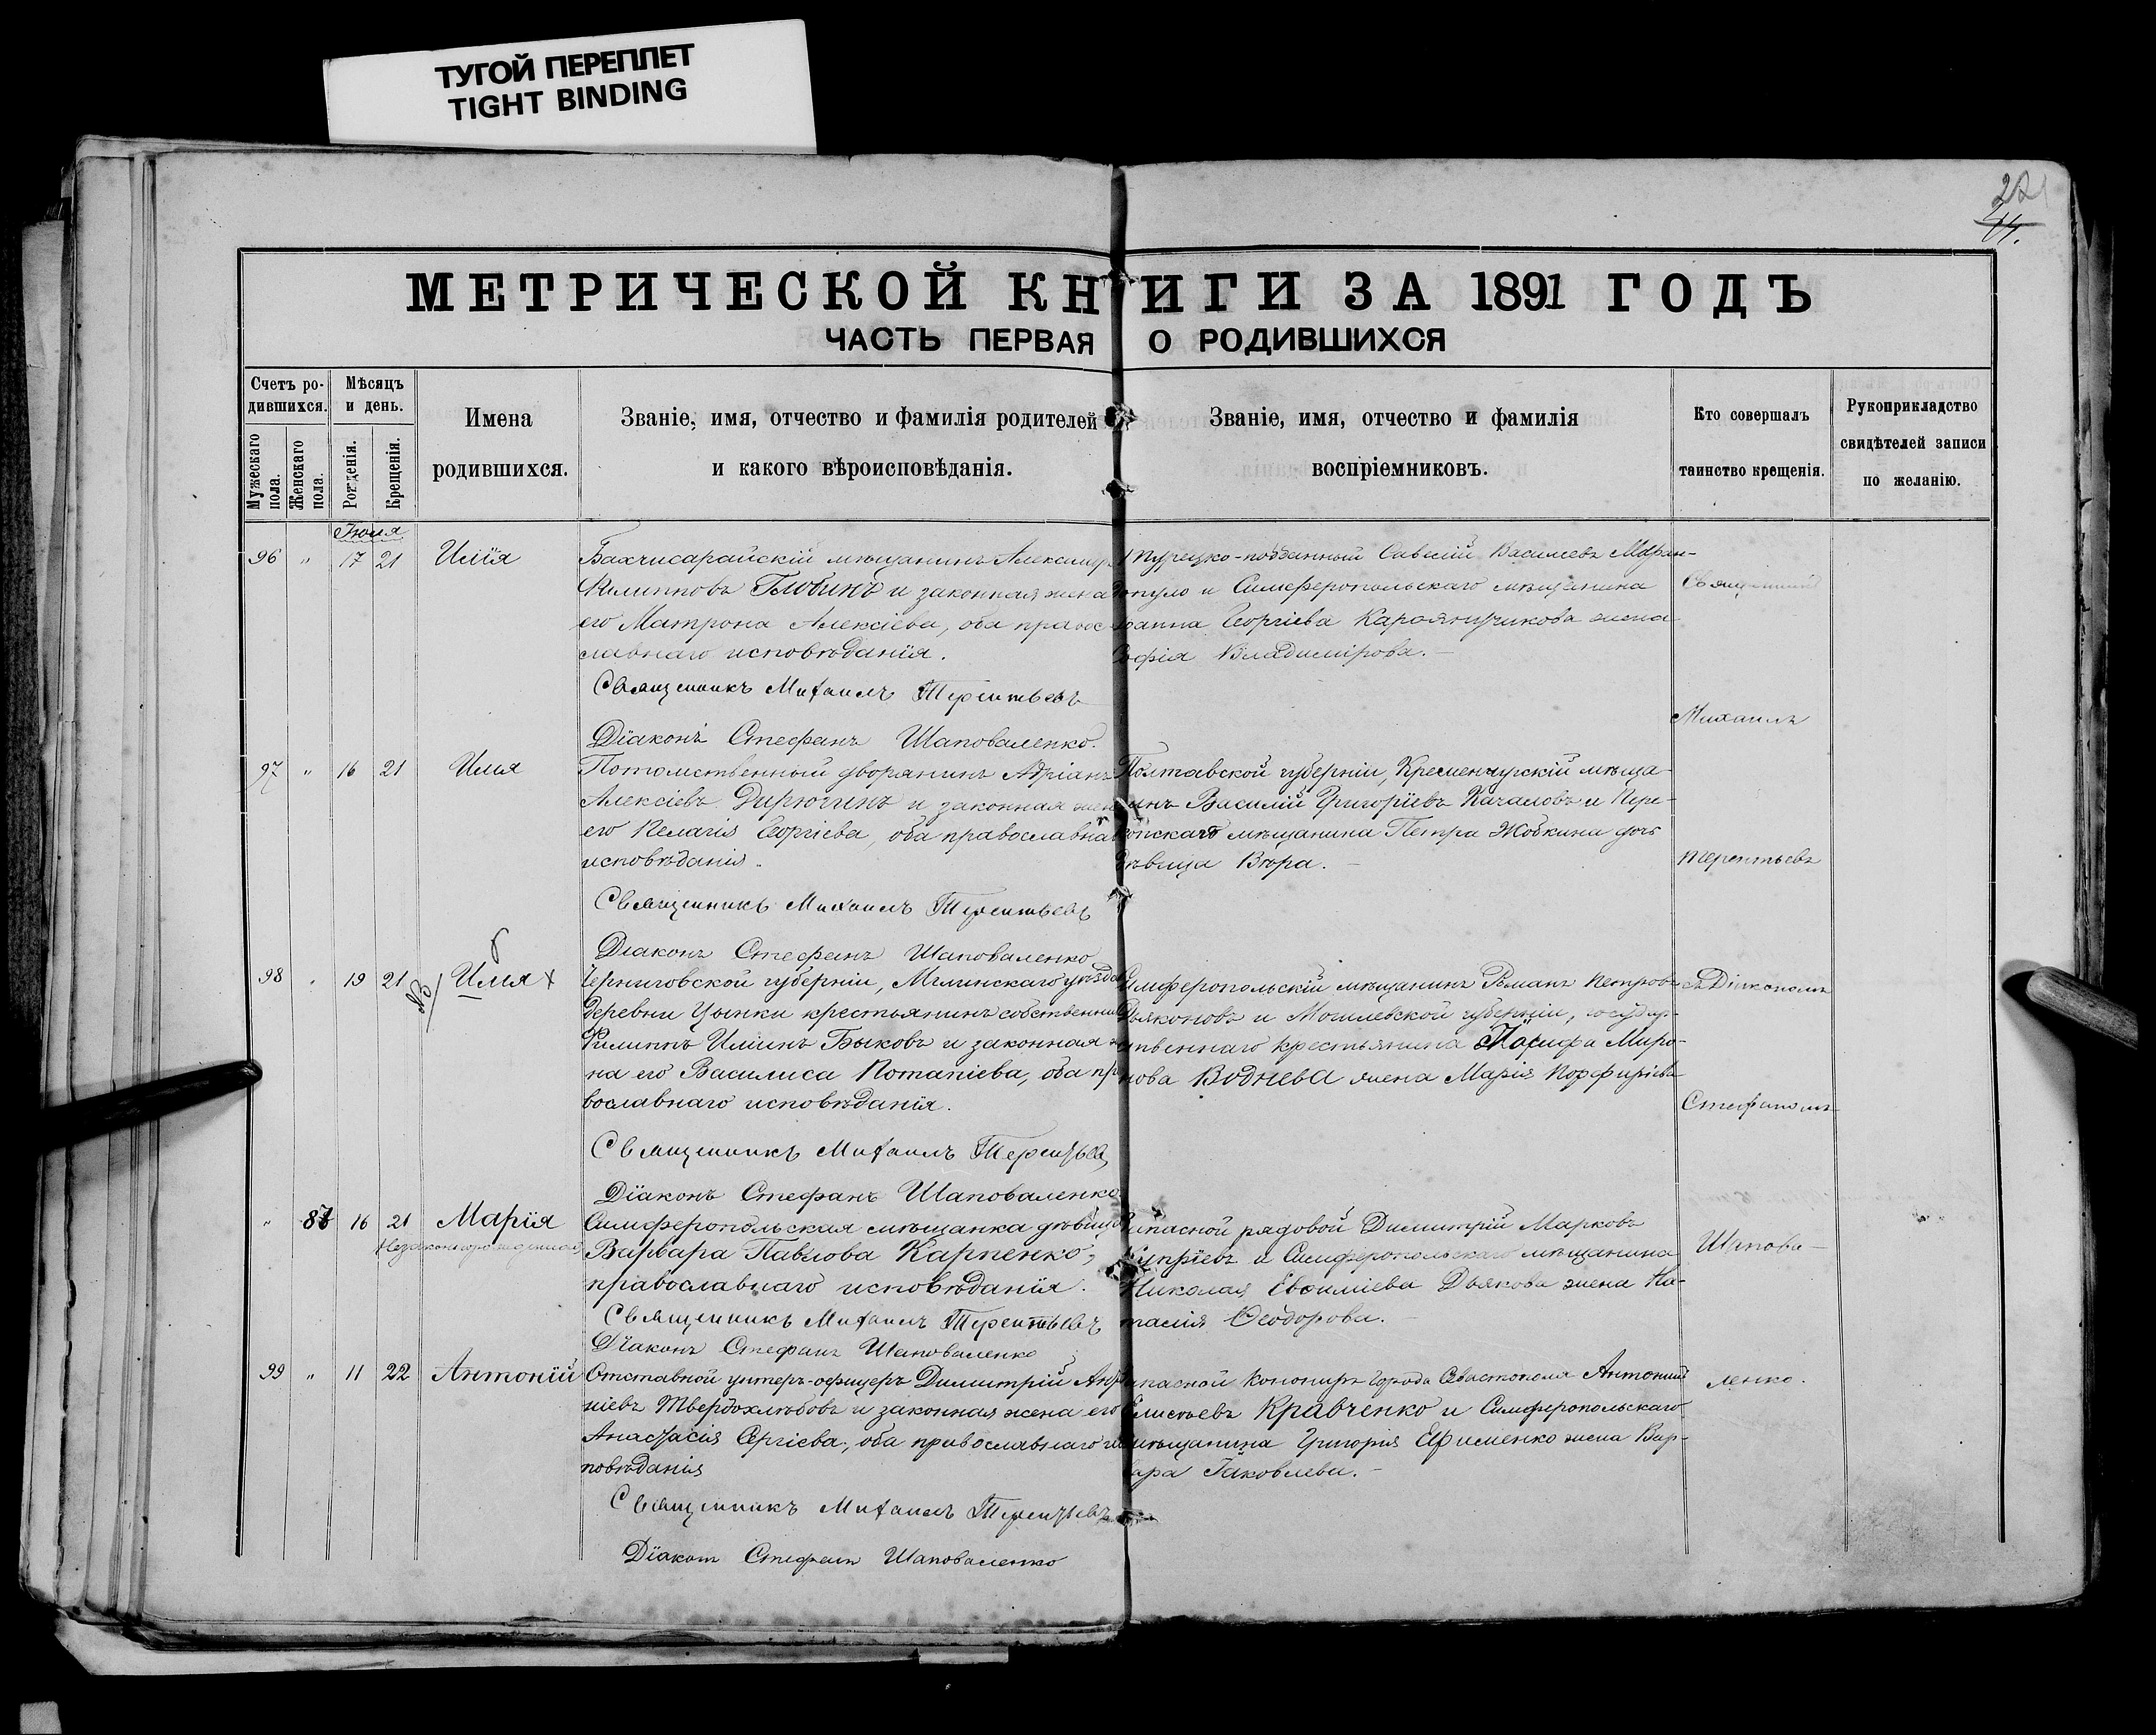 ТУГОЙ ПЕРЕПЛЕТ
TIGHT BINDING
221
МЕТРИЧЕСКОЙ КНИГИ ЗА 1891 ГОДЪ
ЧАСТЬ ПЕРВАЯ О РОДИВШИХСЯ
Счетъ родившихся.
Мужескаго пола.
Женскаго пола.
Мѣсяцъ и день.
Рожденія.
Крещенія.
Имена
родившихся.
Званіе, имя, отчество и фамилія родителей
и какого вѣроисповѣданія.
Званіе, имя, отчество и фамилія
воспріемниковъ.
Кто совершалъ
таинство крещенія.
Рукоприкладство
свидѣтелей записи
по желанію.
Іюля
96 " 17 21 Илія
Бахчисарайскій мѣщанинъ Александръ
Филипповъ и законная жена
его Матрона Алексіева, оба право-
славнаго исповѣданія.
Священникъ Михаилъ Терентьевъ
Діаконъ Стефанъ Шаповаленко.
Турецко-подданный Савелій Василевъ
и Симферопольскаго мѣщанина
Іоанна Георгіева жена
Софія Владимірова.
97 " 16 21 Илія
Потомственный дворянинъ Адріанъ
Алексіевъ Дирюгинъ и законная жена
его Пелагія Георгіева, оба православнаго
исповѣданія.
Священникъ Михаилъ Терентьевъ
Діаконъ Стефанъ Шаповаленко
Полтавской губерніи, Кременчугскій мѣща-
нинъ Василій Григоріевъ Качаловъ и Пере-
копскаго мѣщанина Петра Жобкина дочь
дѣвица Вѣра.
98 " 19 21 Илія
Черниговской губерніи, Мглинскаго уѣзда
деревни Цынки крестьянинъ собственникъ
Филиппъ Илiинъ Быковъ и законная же-
на его Василиса Потапіева, оба пра-
вославнаго исповѣданія.
Священникъ Михаилъ Терентьевъ
Діаконъ Стефанъ Шаповаленко
Симферопольскій мѣщанинъ Романъ Петровъ
Дьяконовъ и Могилевской губерніи, государ-
ственнаго крестьянина Миро-
нова Воднева жена Марія Порфиріева
" 87 16 21 Марія
незаконнорожденная
Симферопольская мѣщанка дѣвица
Варвара Павлова Карпенко,
православнаго исповѣданія.
Священникъ Михаилъ Терентьевъ
Діаконъ Стефанъ Шаповаленко
Запасной рядовой Димитрій Марковъ
Купріевъ и Симферопольскаго мѣщанина
Николая Евфиміева Дьякова жена На-
талія Ѳеодорова.
99 " 11 22 Антоній
Отставной унтеръ-офицеръ Димитрій
Твердохлѣбовъ и законная жена его
Анастасія Сергіева, оба православнаго ис-
повѣданія
Священникъ Михаилъ Терентьевъ
Діаконъ Стефанъ Шаповаленко
Запасной города Севастополя Антоній
Елисѣевъ Кравченко и Симферопольскаго
мѣщанина Григорія Ефименко жена Вар-
вара Іаковлева.
Священникъ
Михаилъ
Терентьевъ
съ Діакономъ
Стефаномъ
Шапова-
ленко.